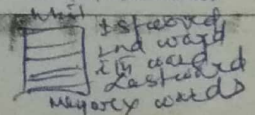 n bit
1st word
2nd word
ith word
Last word
Memory words